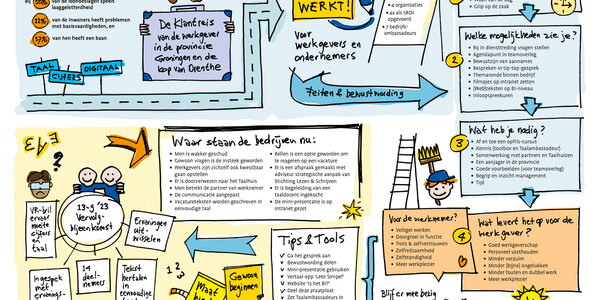 laaggeletterdheid
12% van de inwoners heeft problemen
met basisvaardigheden, en
57% van hen heeft een baan
TAAL
CIJFERS
DIGITAAL
De Klantreis
van de werkgever
in de provincie
Groningen en de
kop van Drenthe
WERKT!
organisaties
ex als SROI
opgevoerd
7 bedrijfs-
ambassadeurs
voor
werkgevers en
ondernemers
Feiten & bewustwording
Grip op de zaak
Welke mogelijkheden zie je?
2
Bij indiensttreding vragen stellen
Agendapunt in teamoverleg
Bewustzijn van aannames
Bespreken in tip-top-gesprek
Themaronde binnen bedrijf
Filmpjes op intranet zetten
(Web)teksten op B1-niveau
Inloopspreekuren
3
Wat heb je nodig?
Af en toe een opfris-cursus
Kennis (toolbox en Taalambassadeur)
Samenwerking met partners en Taalhuizen
Een aanjager in de provincie
Goede voorbeelden (voor teamoverleg)
Begrip en inzicht management
Tijd
Waar staan de bedrijven nu:
Men is wakker geschud
Gewoon vragen is de insteek geworden
Werkgevers zijn zichzelf ook kwetsbaar
gaan opstellen
Er is doorverwezen naar het Taalhuis
Men betrekt de partner van werknemer
De communicatie aangepast
Vacatureteksten worden geschreven in
eenvoudige taal
Bellen is een optie geworden om
te reageren op een vacature
Er is een afspraak gemaakt met
adviseur strategische aanpak van
Stichting Lezen & Schrijven
Er is begeleiding van een
taaldocent ingekocht
De mini-presentatie is op
intranet gezet
13-9 '23
Vervolg-
bijeenkomst
VR-bril
ervaar
moeite
cijfers
en
taal
Ervaringen
uit-
wisselen
In gesprek
met
ervarings-
14
deel-
nemers
Tekst
hertalen
in
eenvoudige
1 2 3
Maat
Gewoon
beginnen
Tips & Tools
Ga het gesprek aan
Bewustwording delen
Mini-presentatie gebruiken
Vertaal-app 'Lees Simpel'
Website 'is het B1?'
Deel deze praatplaat
Zet Taalambassadeurs in
Voor de werknemer?
Veiliger werken
Doorgroei in functie
Trots & zelfvertrouwen
Zelfredzaamheid
Zelfstandigheid
Meer werkplezier
4
Wat levert het op voor de
werkgever?
Goed werkgeverschap
Personeel vasthouden
Minder verzuim
Minder (bijna) ongelukken
Minder fouten en dubbel werk
Meer werkplezier
Blijf er mee bezig